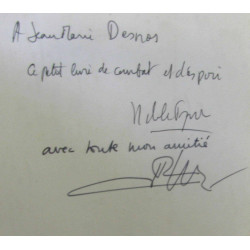 A Jean Marie Desnos
Ce petit livre de combat et d'espoir
avec toute mon amitié